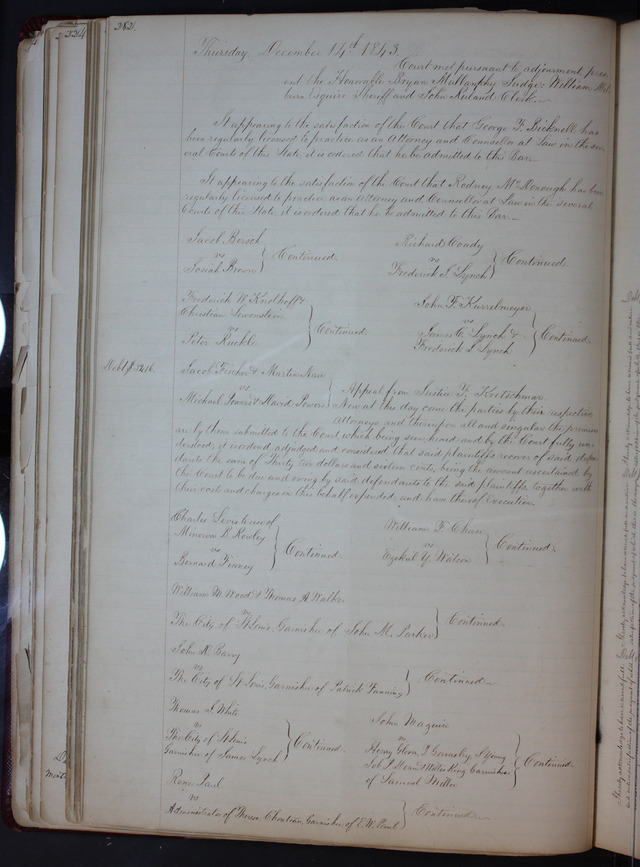 282.
Thursday, December 14th 1843.
Court met pursuant to adjournment, pres-
ent the Honorable Bryan Mullanphy Judge; William Mil-
burn Esquire Sheriff and John Ruland Clerk.
It appearing to the satisfaction of the Court that George F. Bicknell has
been regularly licensed to practice as an Attorney and Counsellor at Law in the sev-
eral Courts of this State, it is ordered that he be admitted to this Bar.
It appearing to the satisfaction of the Court that Rodney McDonough has been
regularly licensed to practice as an Attorney and Counsellor at Law in the several
Courts of this State it is ordered that he be admitted to this Bar.
Jacob Borsch
vs
Josiah Brown
Continued.
Richard Coady
vs
Frederick S Lynch
Continued.
Frederick W. Knolhoff &
Christian
vs
Peter Ruckle
Continued.
John F. Kurrelmeyer
vs
James C. Lynch &
Frederick S Lynch
Continued.
Debt $32.16.
Jacob & Martin
vs
Michael Powers & David Powers
Appeal from Justice F. Kretschmar
Now at this day come the parties by their respective
Attorneys and thereupon all and singular the premises
are by them submitted to the Court which being seen, heard and by the Court fully un-
derstood; it is ordered adjudged and considered that said plaintiffs recover of said defen-
dants the sum of Thirty two dollars and sixteen cents, being the amount ascertained by
the Court to be due and owing by said defendants to the said plaintiffs, together with
their cost and charges in this behalf expended, and have thereof Execution.
Charles use of
Minerva B. Rowley
vs
Bernard Finney
Continued.
William F. Chase
vs
Ezekiel Y. Watson
Continued.
William M. Wood & Thomas A Walker
vs
The City of St Louis, Garnishee of John M. Parker
Continued.
John N. Barry
vs
The City of St Louis, Garnishee of Patrick Fanning
Continued.
Thomas S. White
vs
The City of St Louis
Garnishee of James Lynch
Continued.
John Maguire
vs
Henry
of Samuel Miller
Continued.
Rene Paul
vs
Administrator of Therese Chouteau, Garnishee of E. W. Paul
Continued.